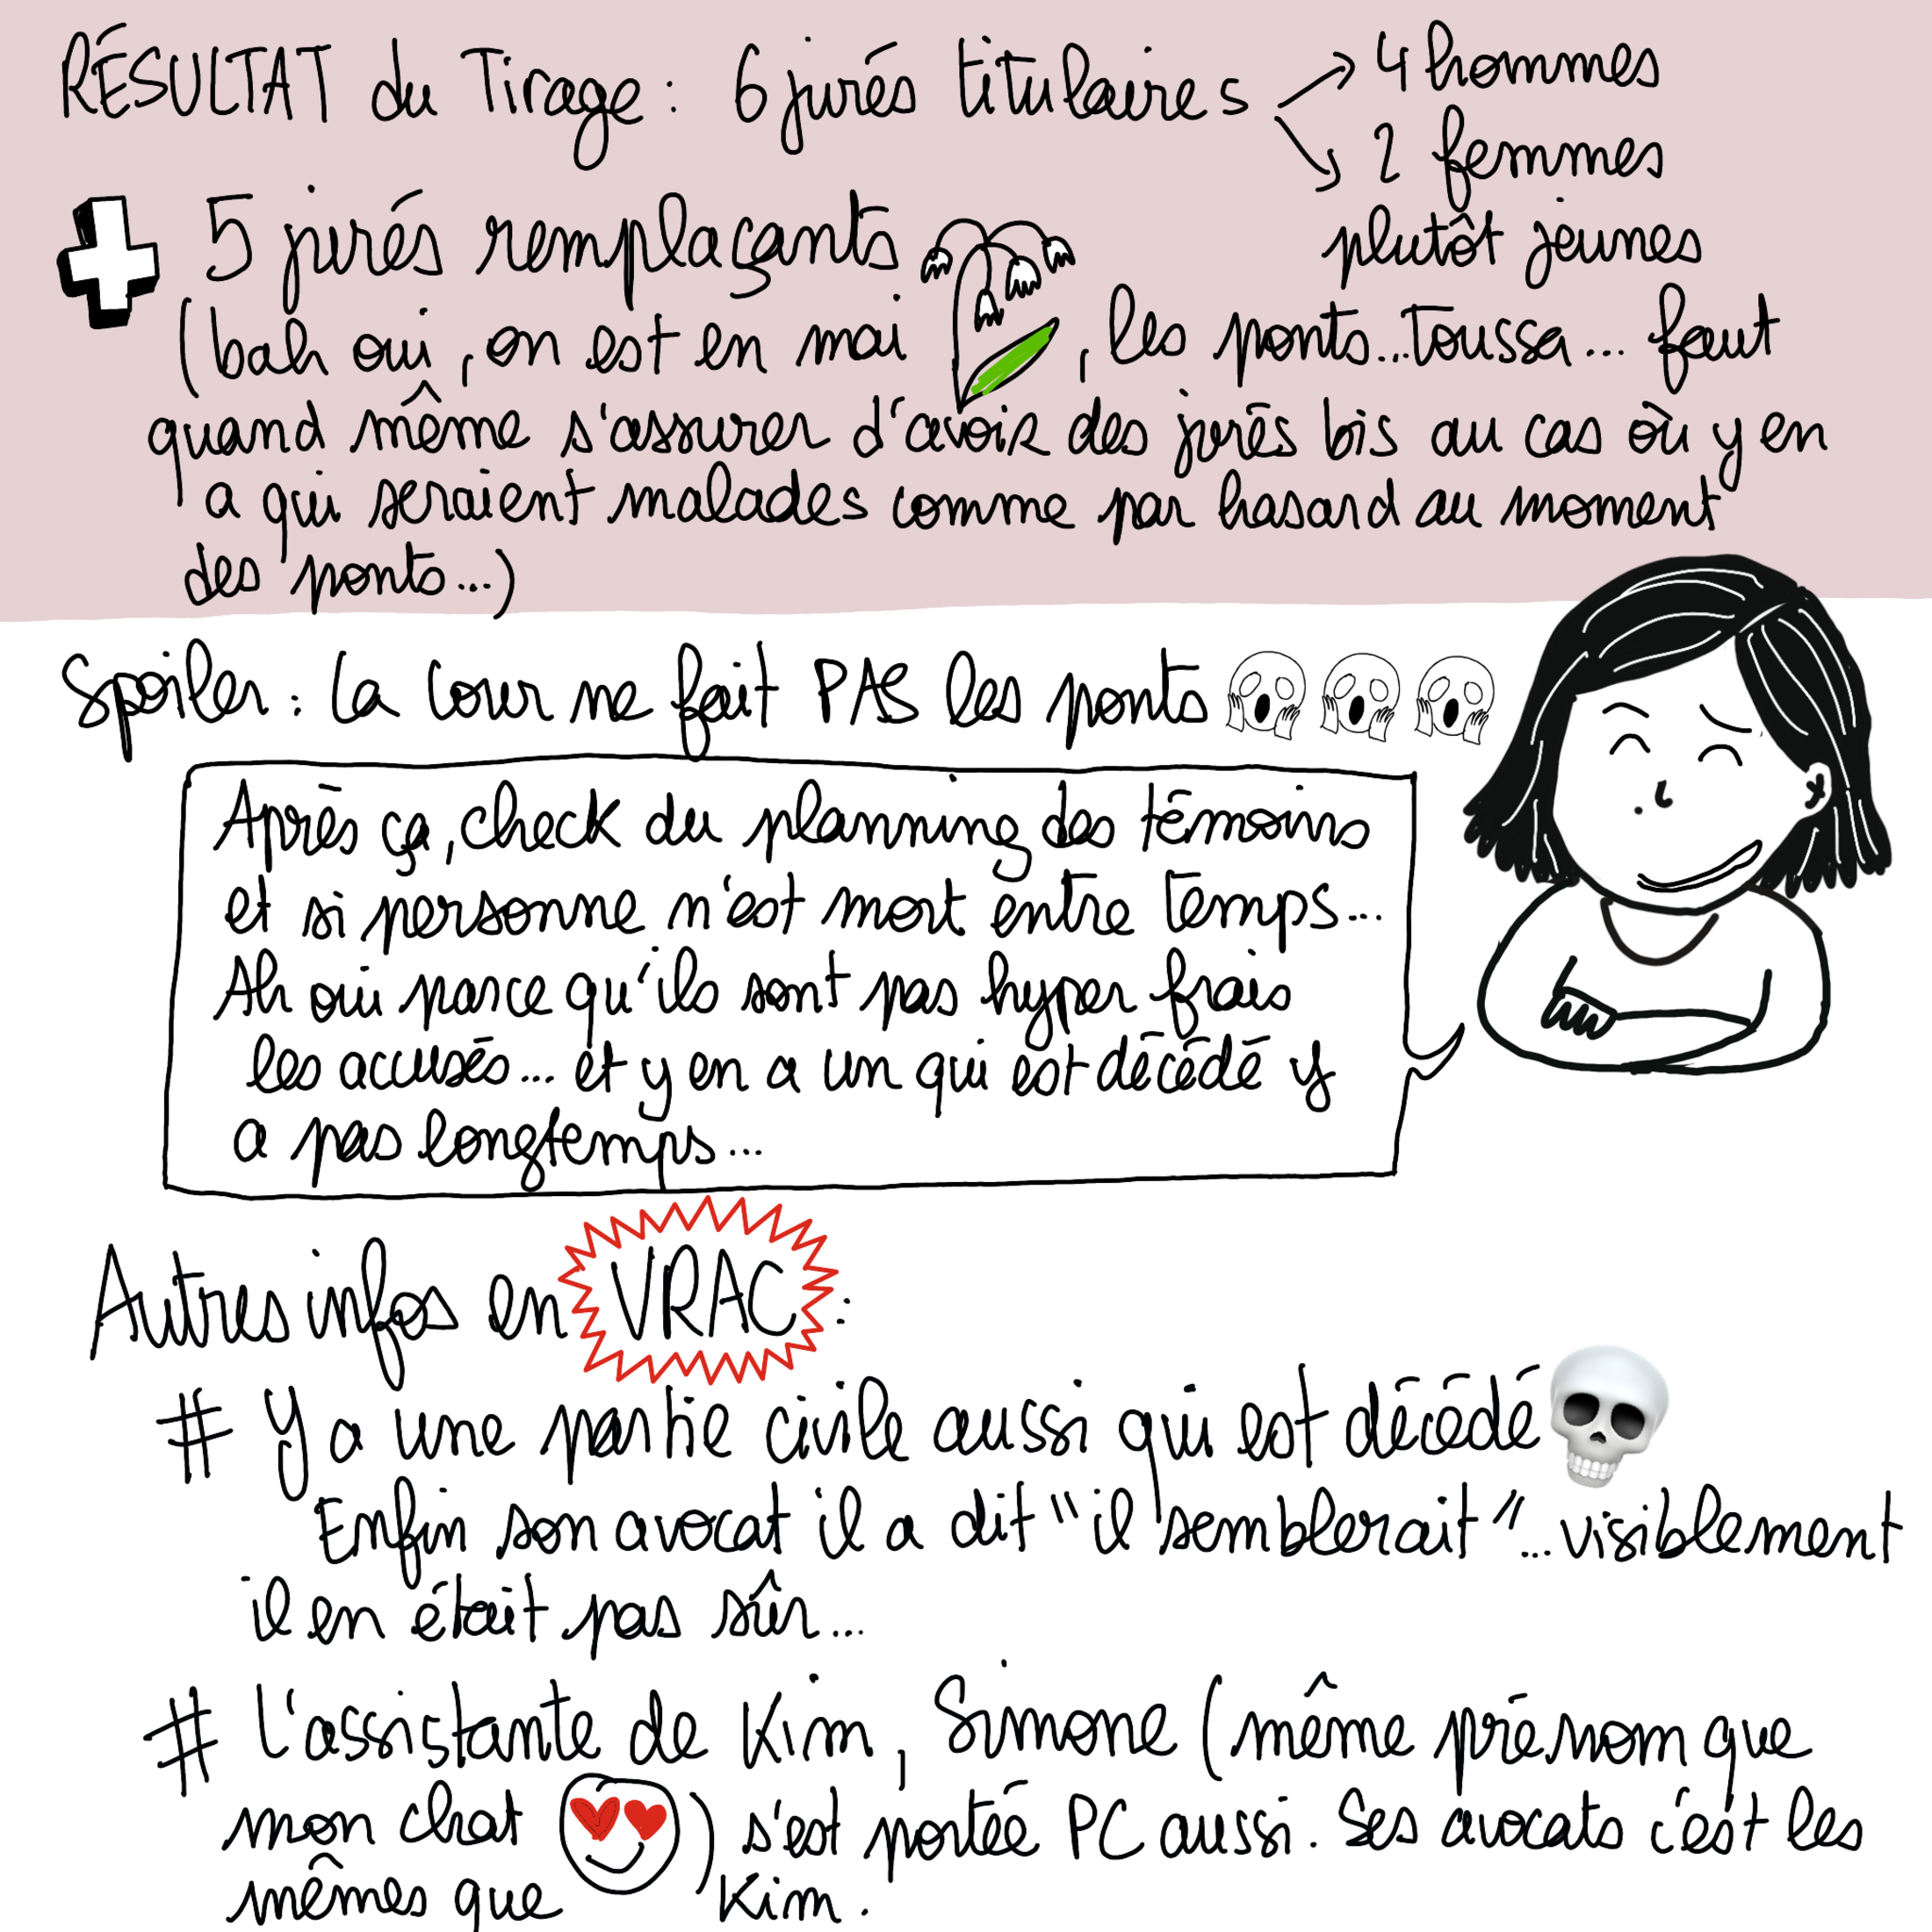 RÉSULTAT du Tirage : 6 jurés titulaires → 4 hommes
→ 2 femmes
plutôt jeunes
+ 5 jurés remplaçants
(bah oui, on est en mai, les ponts...Toussa... faut
quand même s'assurer d'avoir des jurés bis au cas où y en
a qui seraient malades comme par hasard au moment
des ponts...)
Spoiler : la Cour ne fait PAS les ponts
Après ça, check du planning des témoins
et si personne n'est mort entre temps...
Ah oui parce qu'ils sont pas hyper frais
les accusés... et y en a un qui est décédé y
a pas longtemps...
Autres infos en VRAC :
# Y a une partie civile aussi qui est décédé
Enfin son avocat il a dit "il semblerait"... visiblement
il en était pas sûr...
# L'assistante de Kim, Simone (même prénom que
mon chat) s'est portée PC aussi. Ses avocats c'est les
mêmes que Kim.